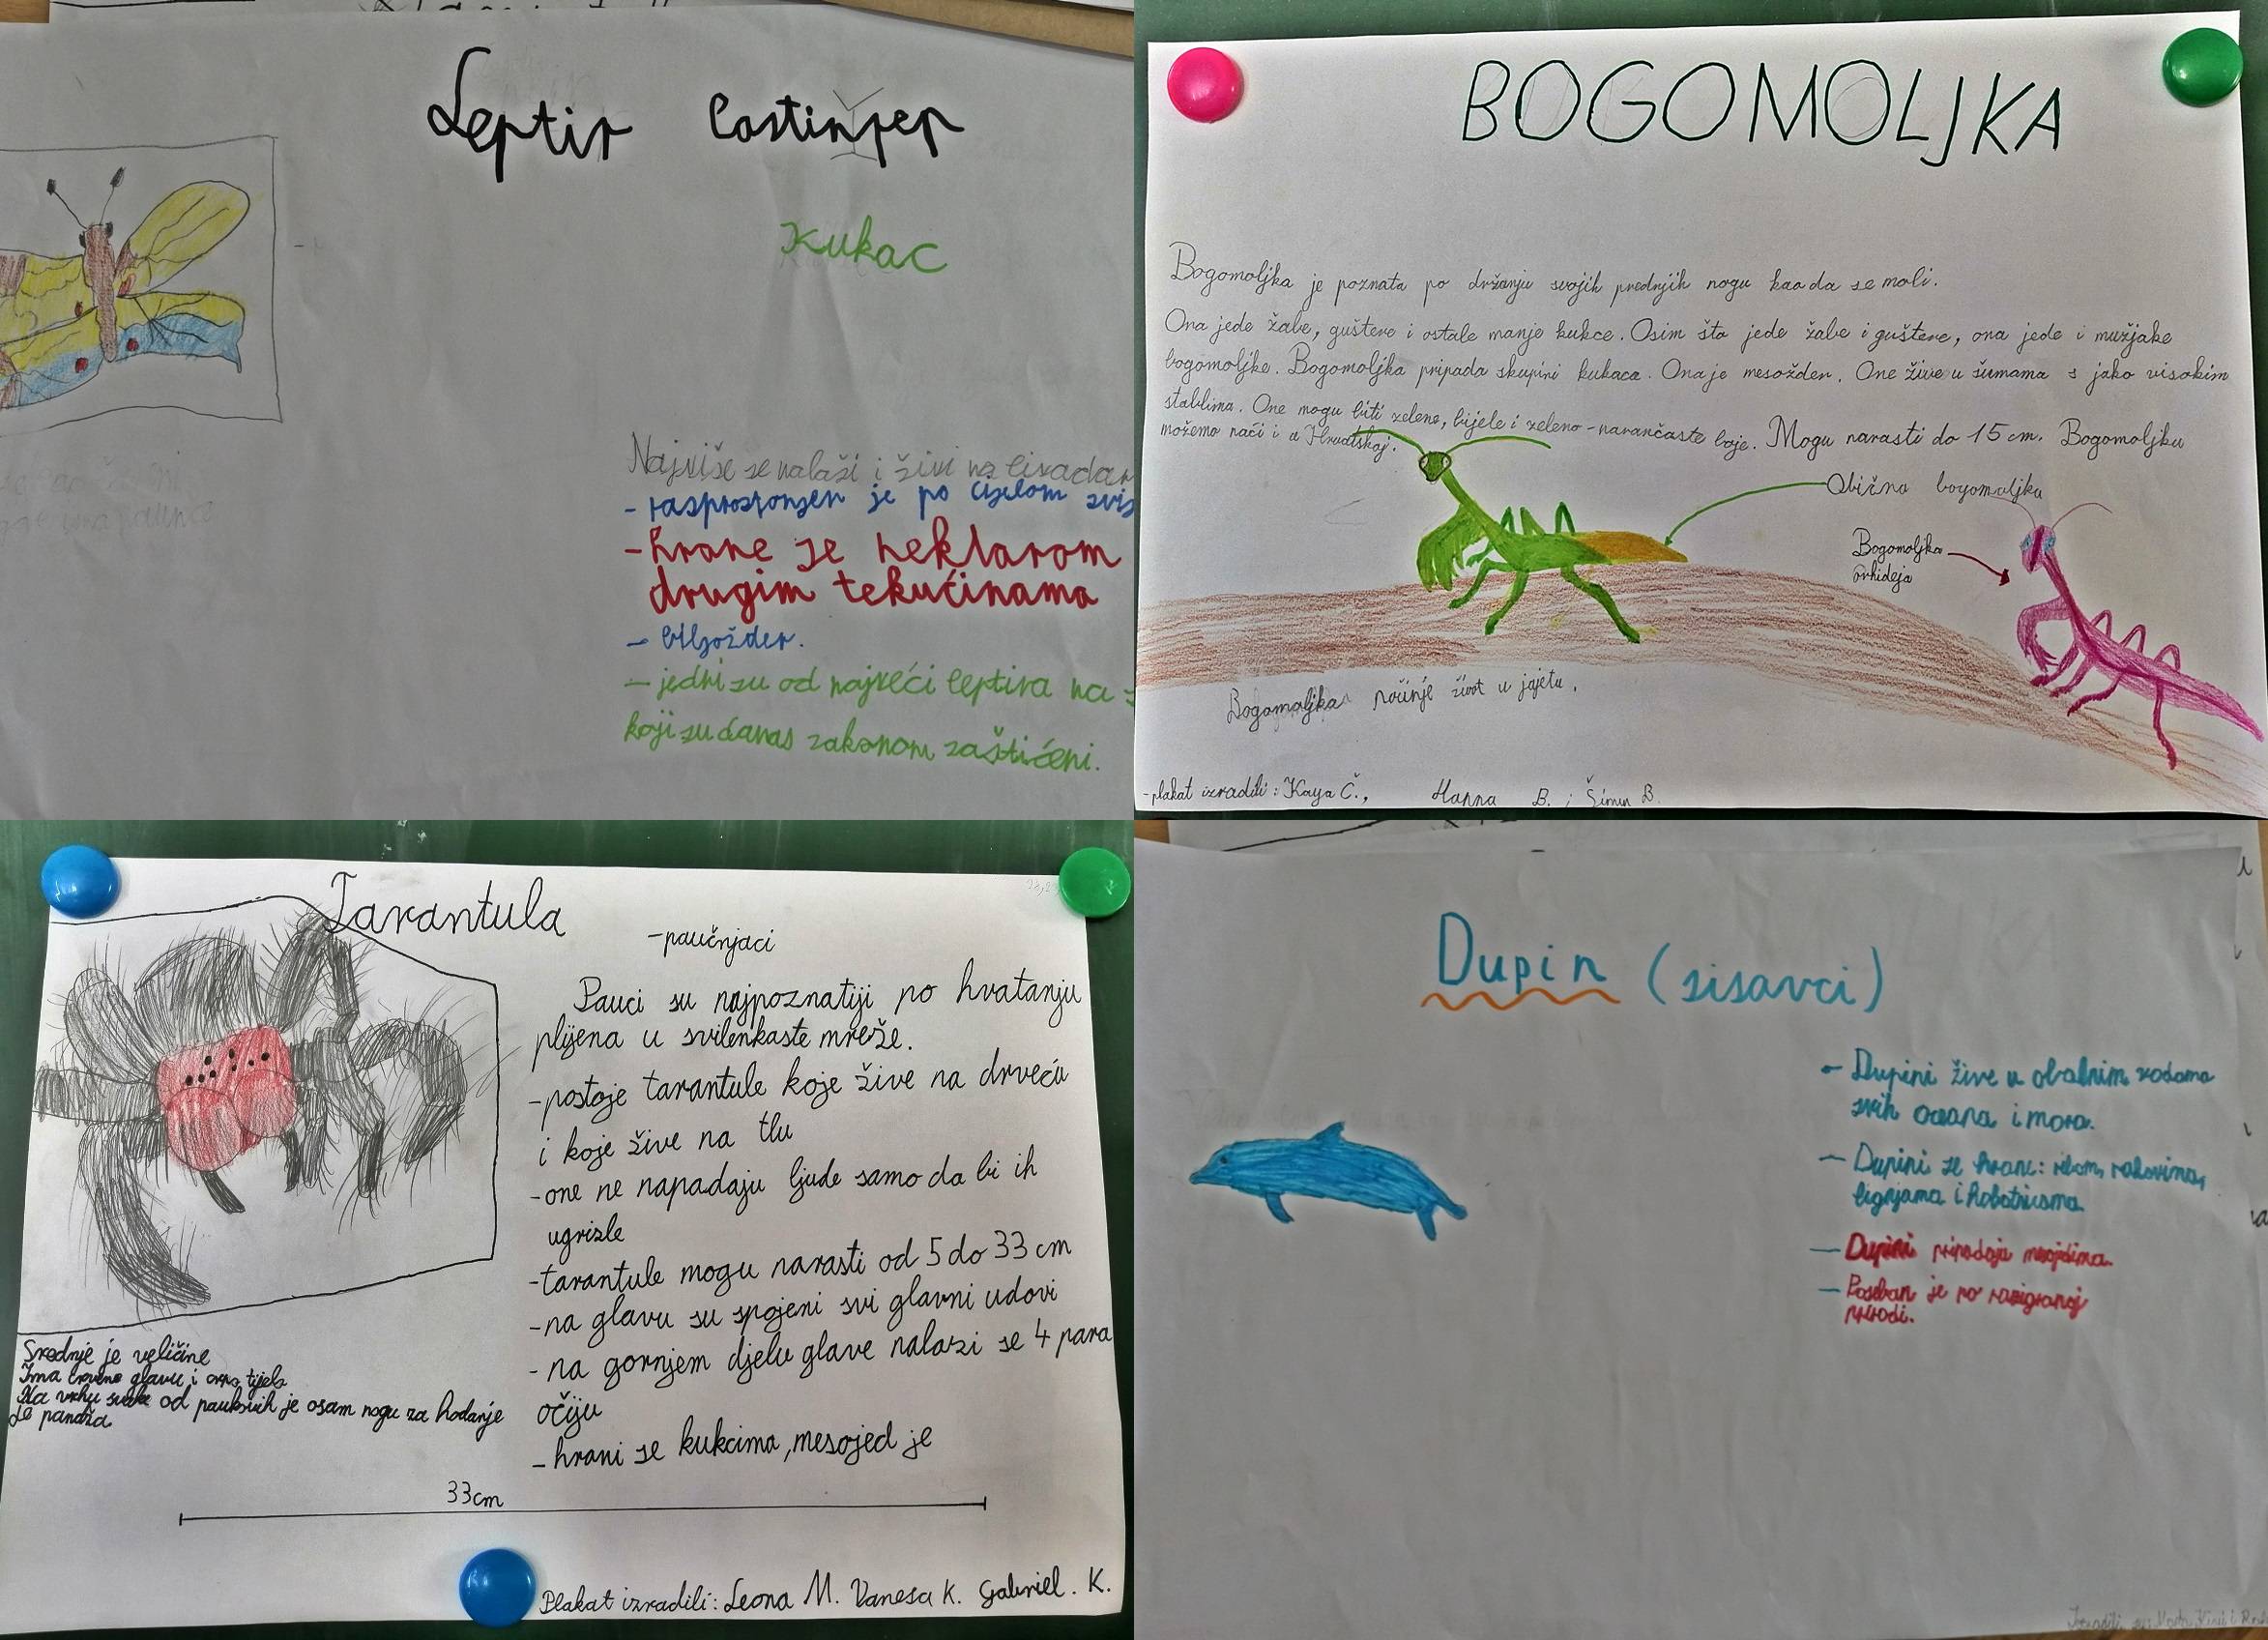 Leptir Lastinrep
Kukac
Najviše se nalazi i živi na livadam
- rasprostonjen je po cijelom svij
- hrane se nektarom
drugim tekućinama
- biljožder.
- jedni su od najveći leptira na
koji su danas zakonom zaštićeni.
BOGOMOLJKA
Bogomoljka je poznata po držanju svojih prednjih nogu kao da se moli.
Ona jede žabe, guštere i ostale manje kukce. Osim šta jede žabe i guštere, ona jede i mužjake
bogomoljke. Bogomoljka pripada skupini kukaca. Ona je mesožder. One žive u šumama s jako visokim
stablima. One mogu biti zelene, bijele i zeleno-narančaste boje. Mogu narasti do 15 cm. Bogomoljku
možemo naći i u Hrvatskoj.
Obična bogomoljka
Bogomoljka
orhideja
Bogomoljka počinje život u jajetu.
-plakat izradili: Kaya Č., Hanna B. i Šimun B.
Tarantula
-paučnjaci
Pauci su najpoznatiji po hvatanju
plijena u svilenkaste mreže.
-postoje tarantule koje žive na drveću
i koje žive na tlu
-one ne napadaju ljude samo da bi ih
ugrizle
-tarantule mogu narasti od 5 do 33 cm
-na glavu su spojeni svi glavni udovi
- na gornjem djelu glave nalazi se 4 para
očiju
- hrani se kukcima, mesojed je
Srednje je veličine
Ima crvenu glavu i crno tijelo
Na vrhu svake od paukovih je osam nogu za hodanje
je pandža
33cm
Plakat izradili: Leona M. Vanesa K. Gabriel. K.
Dupin (sisavci)
- Dupini žive u obalnim vodama
svih oceana i mora.
- Dupini se hrane: ribom, rakovima,
lignjama i hobotnicama.
- Dupini pripadaju mesojedima.
- Poseban je po razigranoj
prirodi.